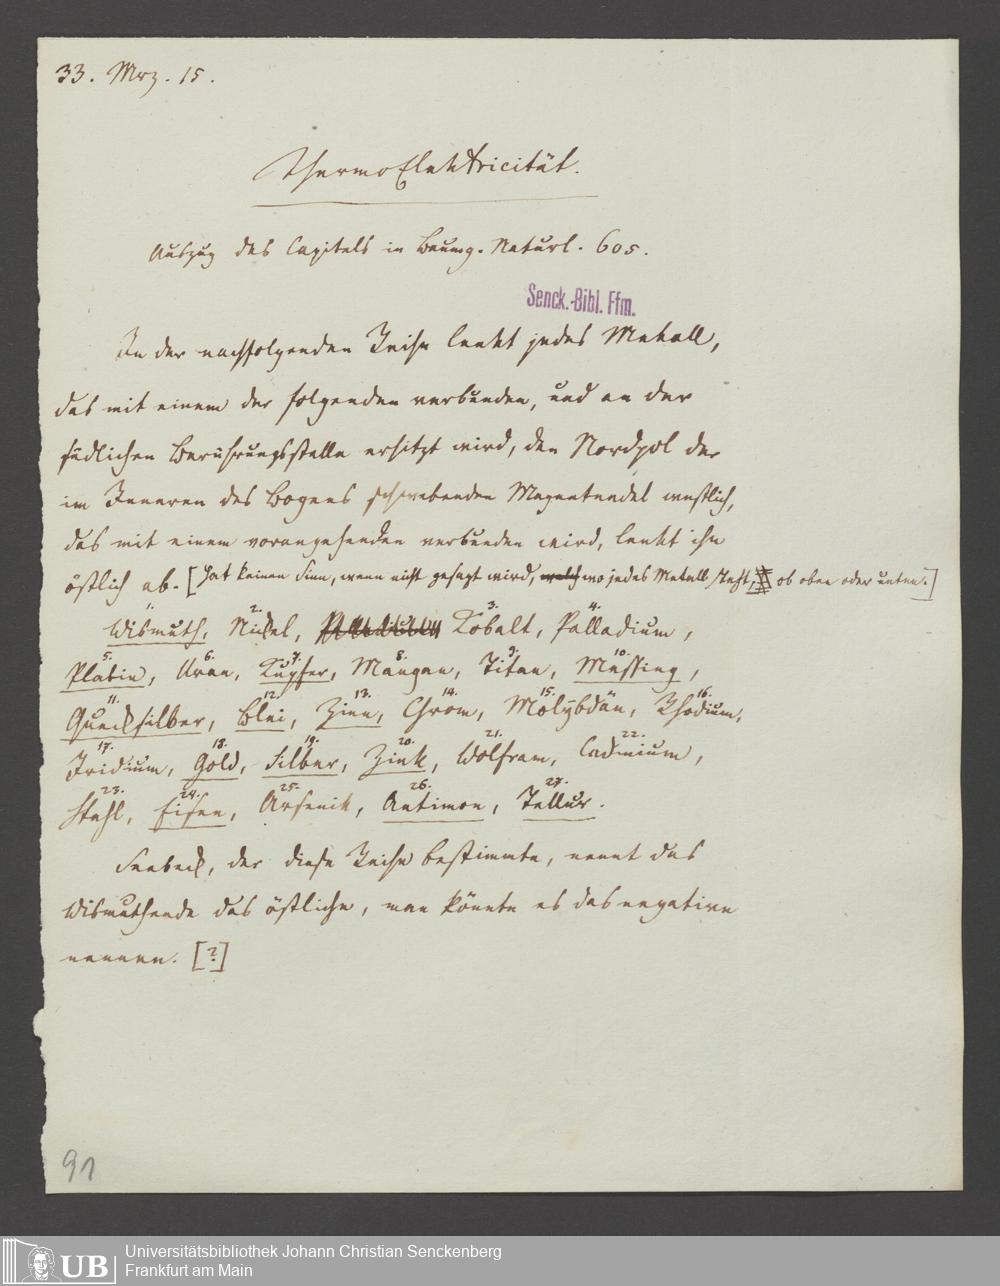 33. Mrz. 15.
ThermoElektricität.
Auszug des Capitels in Baumg. Naturl. 605.
Senck.-Bibl. Ffm.
In der nachfolgenden Reihe lenkt jedes Metall,
das mit einem der folgenden verbunden, und an der
südlichen Berührungsstelle erhitzt wird, den Nordpol der
im Inneren des Bogens schwebenden Magnetnadel westlich,
das mit einem vorangehenden verbunden wird, lenkt ihn
östlich ab. [hat keinen Sinn, wenn nicht gesagt wird, wo jedes Metall steht, ob oben oder unten.]
1. 2. 3. 4.
Wismuth, Nickel, Kobalt, Palladium,
5. 6. 7. 8. 9. 10.
Platin, Uran, Kupfer, Mangan, Titan, Messing,
11. 12. 13. 14. 15. 16.
Quecksilber, Blei, Zinn, Chrom, Molybdän, Rhodium,
17. 18. 19. 20. 21. 22.
Iridium, Gold, Silber, Zink, Wolfram, Cadmium,
23. 24. 25. 26. 27.
Stahl, Eisen, Arsenik, Antimon, Tellur.
Seebeck, der diese Reihe bestimmte, nennt das
Wismuthende das östliche, man könnte es das negative
nennen. [?]
91
UB
Universitätsbibliothek Johann Christian Senckenberg
Frankfurt am Main